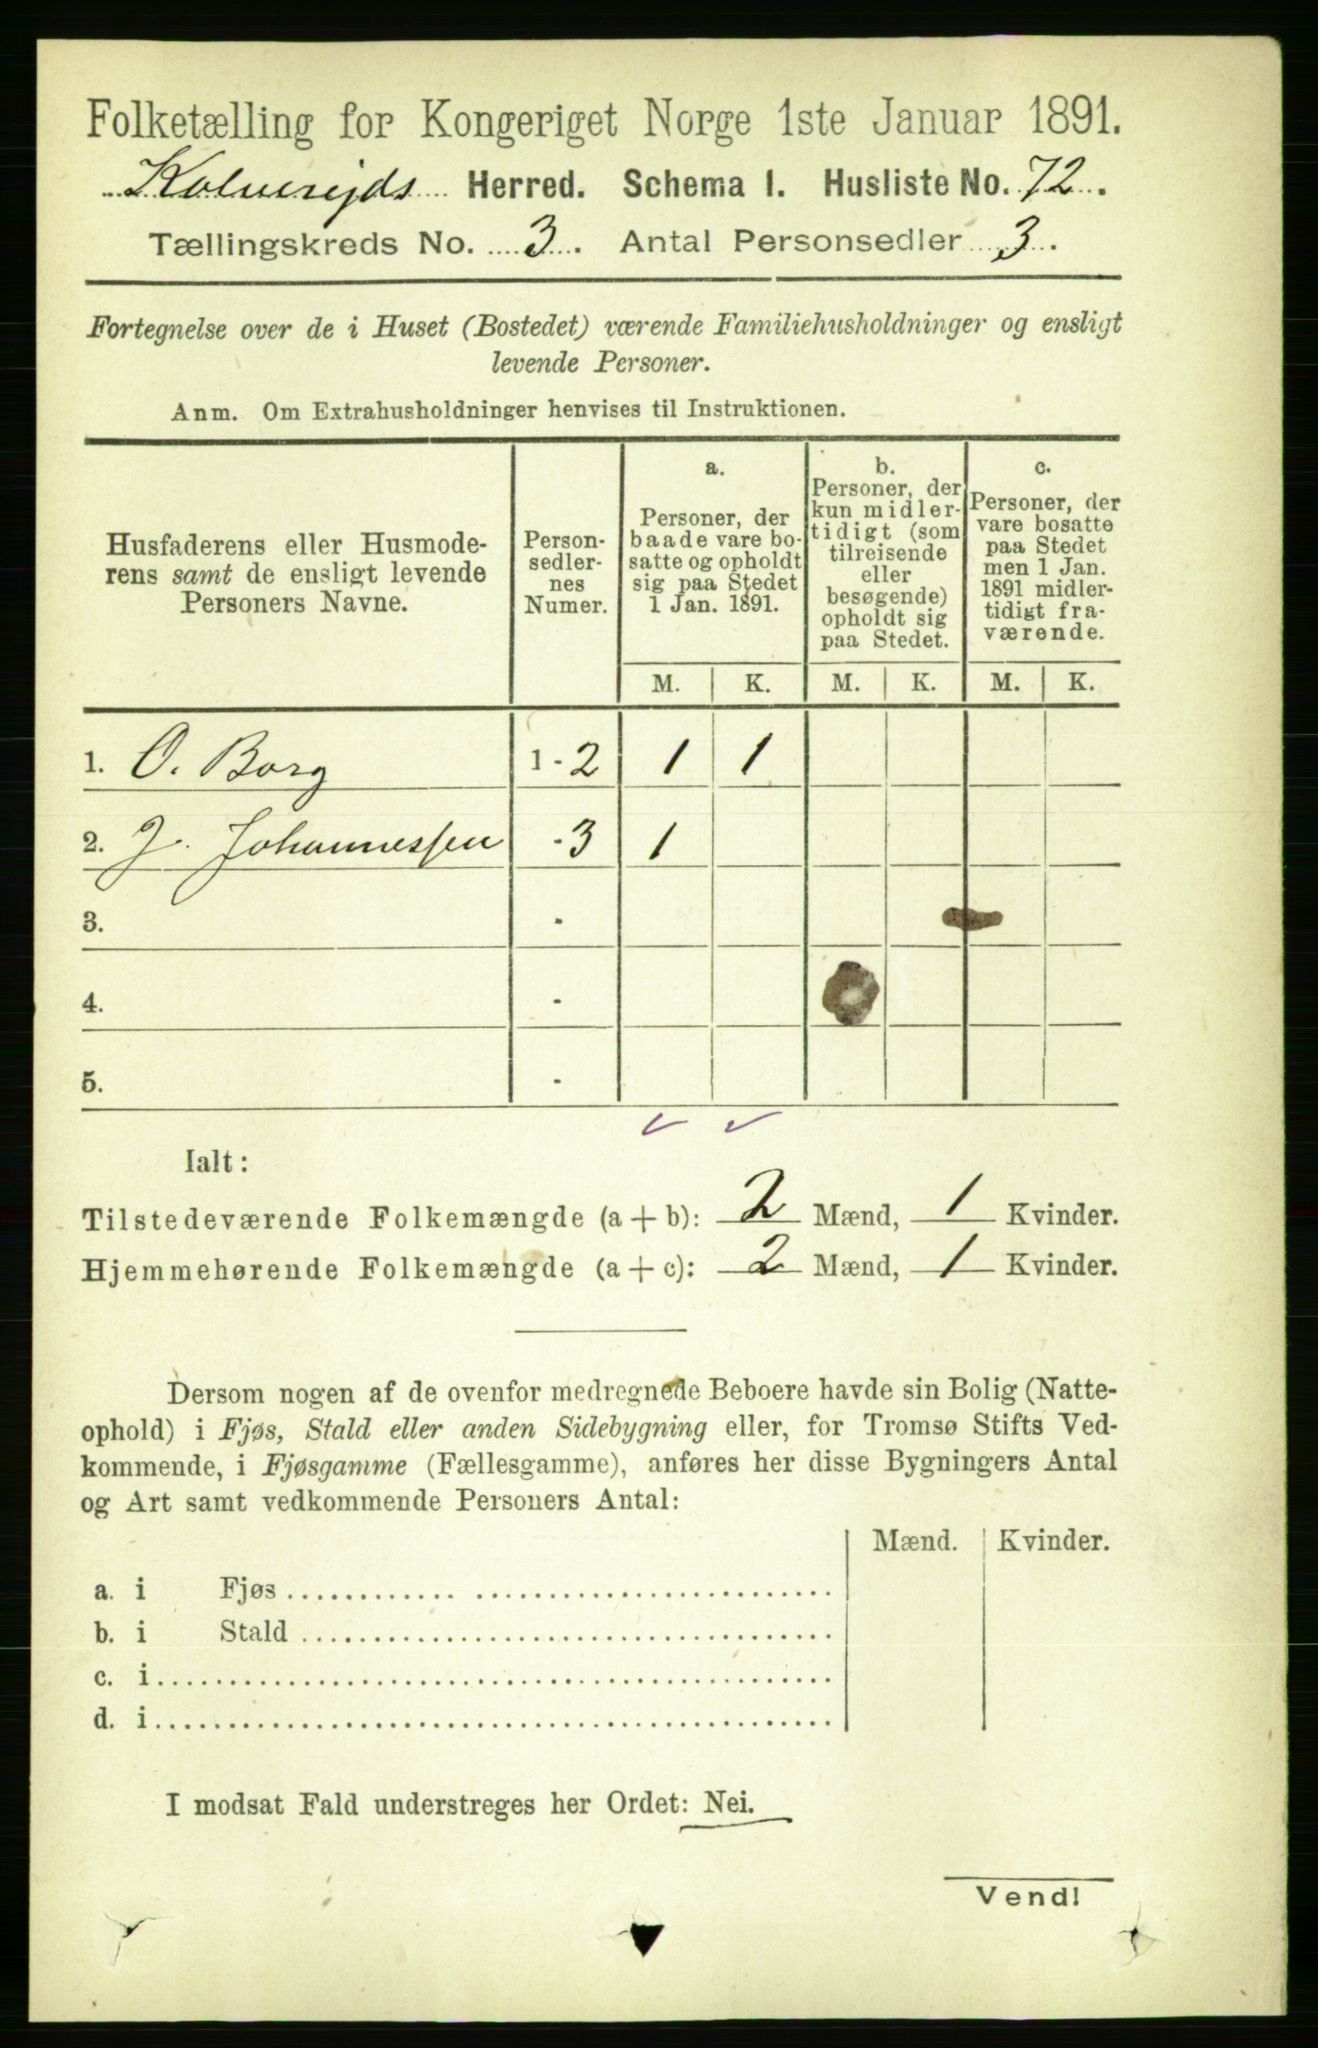 Folketælling for Kongeriget Norge 1ste Januar 1891.
Kolvereids Herred. Schema 1. Husliste No. 72.
Tællingskreds No. 3. Antal Personsedler 3.
Fortegnelse over de i Huset (Bostedet) værende Familiehusholdninger og ensligt
levende Personer.
Anm. Om Extrahusholdninger henvises til Instruktionen.
Husfaderens eller Husmode-
rens samt de ensligt levende
Personers Navne.
Person-
sedler-
nes
Numer.
a.
Personer, der
baade vare bo-
satte og opholdt
sig paa Stedet
1 Jan. 1891.
b.
Personer, der
kun midler-
tidigt (som
tilreisende
eller
besøgende)
opholdt sig
paa Stedet.
c.
Personer, der
vare bosatte
paa Stedet
men 1 Jan.
1891 midler-
tidigt fra-
værende.
M. K. M. K. M. K.
1. O. Borg 1 - 2 1 1
2. J. Johannessen - 3 1
3. -
4. -
5. -
Ialt:
Tilstedeværende Folkemængde (a + b): 2 Mænd, 1 Kvinder.
Hjemmehørende Folkemængde (a + c): 2 Mænd, 1 Kvinder.
Dersom nogen af de ovenfor medregnede Beboere havde sin Bolig (Natte-
ophold) i Fjøs, Stald eller anden Sidebygning eller, for Tromsø Stifts Ved-
kommende, i Fjøsgamme (Fællesgamme), anføres her disse Bygningers Antal
og Art samt vedkommende Personers Antal:
Mænd. Kvinder.
a. i Fjøs
b. i Stald
c. i
d. i
I modsat Fald understreges her Ordet: Nei.
Vend!